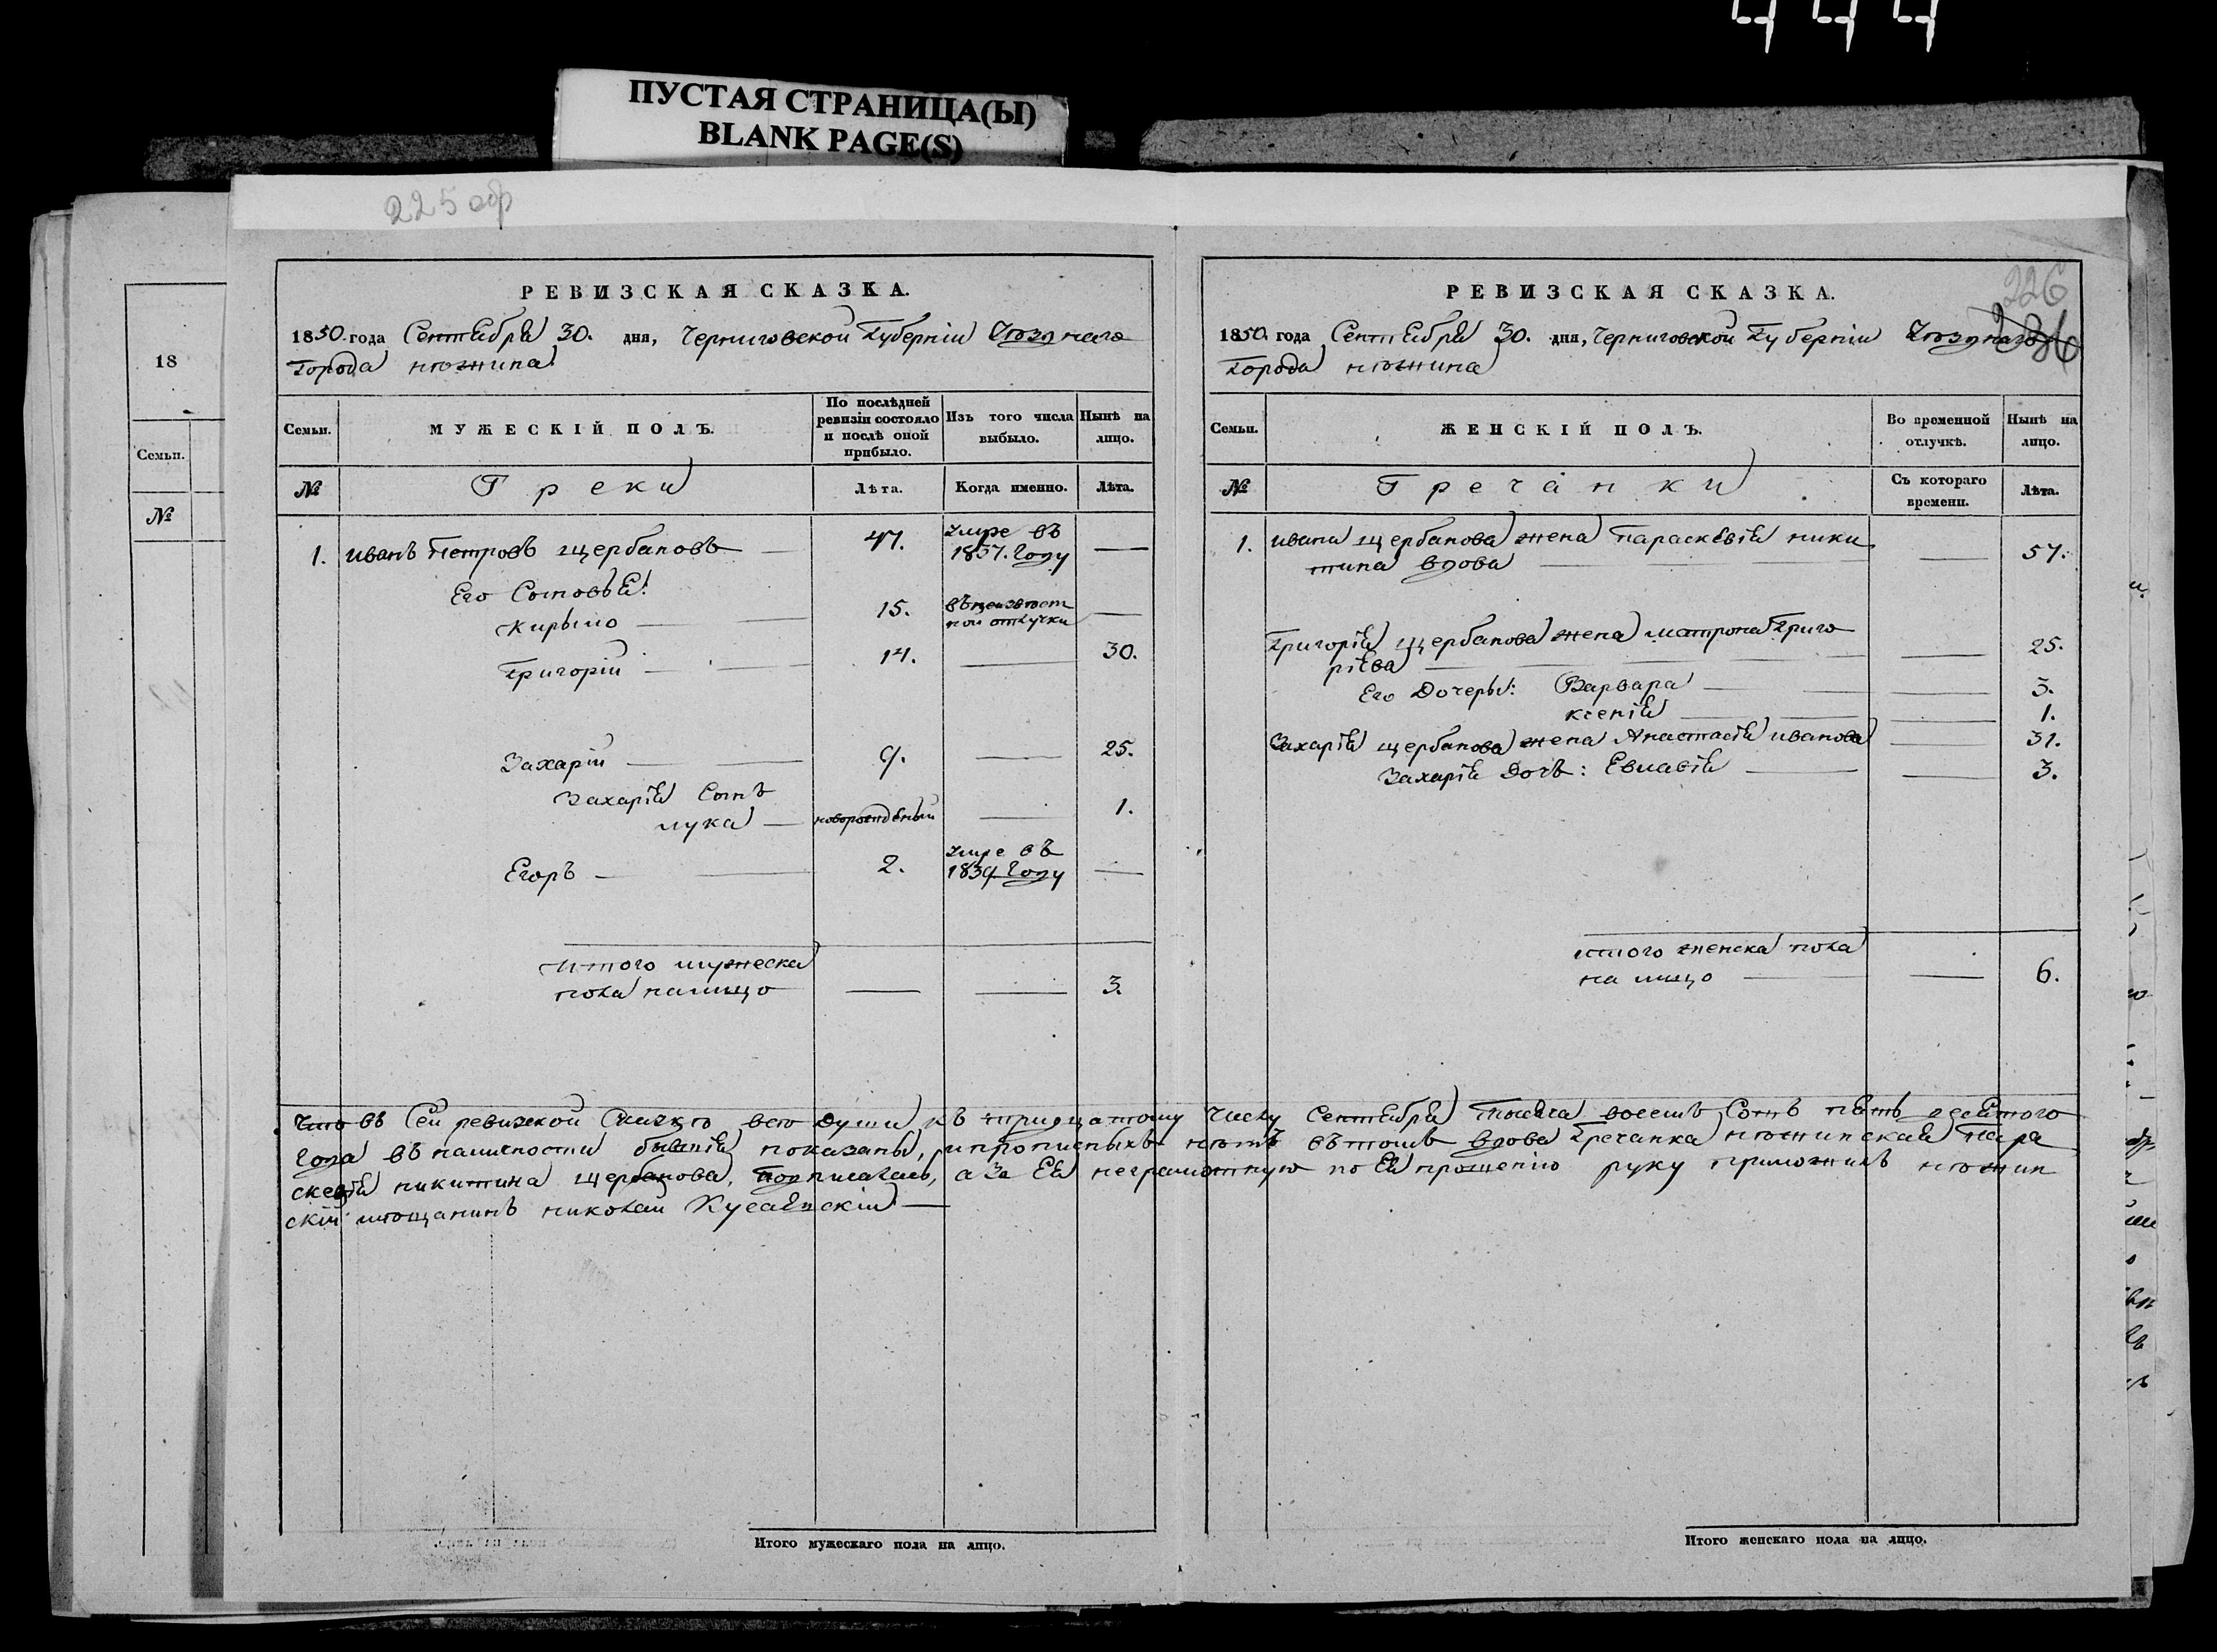 444
ПУСТАЯ СТРАНИЦА(Ы)
BLANK PAGE(S)
225 об
18
Семьи.
№
РЕВИЗСКАЯ СКАЗКА.
1850 года Сентебря 30. дня, Черниговской Губерніи Уезднаго
Города Нѣжина
Семьи.
МУЖЕСКІЙ ПОЛЪ.
По послѣдней ревизіи состояло и послѣ оной прибыло.
Изъ того числа выбыло.
Нынѣ на лицо.
№
Греки
Лѣта.
Когда именно.
Лѣта.
1. Иванъ Петровъ Щербаковъ — 47. Умре въ 1837. году —
Его Сыновья:
Кирыло — 15. въ неизвѣстной отлучки —
Григорій — 14. — 30.
Захарій — 9. — 25.
Захарія Сынъ
Лука — новорожденый — 1.
Егоръ — 2. Умре въ 1839 году —
Итого мужеска
пола налицо — — 3.
Итого мужескаго пола на лицо.
226
РЕВИЗСКАЯ СКАЗКА.
1850. года Сентебря 30. дня, Черниговской Губерніи Уезднаго
Города Нѣжина
Семьи.
ЖЕНСКІЙ ПОЛЪ.
Во временной отлучкѣ.
Нынѣ на лицо.
№
Гречанки
Съ котораго времени.
Лѣта.
1. Ивана Щербакова жена Параскевія Ники
тина вдова — — 57.
Григорія Щербакова жена Матрона Григо
ріева — — 25.
Его Дочеры: Варвара — — 3.
Ксенія — — 1.
Захарія Щербакова жена Анастасія Иванова — 31.
Захарія Дочь: Евлавія — — 3.
итого женска пола
на лицо — — 6.
Что въ Сей ревизской Сказкѣ всѣ души къ тридцатому числу Сентебря тысяча восемь Сотъ пять десятого
года въ наличности бывшія показаны, и прописныхъ нѣтъ въ томъ вдова Гречанка Нѣжинская Пара
скевія Никитина Щербакова, подписалась, а За Ея неграмотную по Ея прошенію руку приложилъ Нѣжин
скій мѣщанинъ Николай
Итого женскаго пола на лицо.